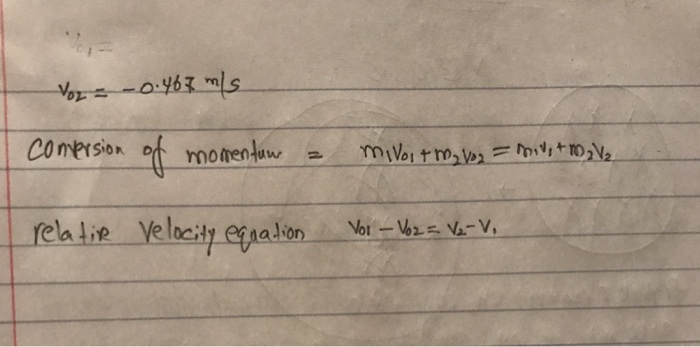 V02 = -0.467 m/s
Conversion of momentum = m1V01 + m2V02 = m1V1 + m2V2
relative Velocity equation V01 - V02 = V2 - V1